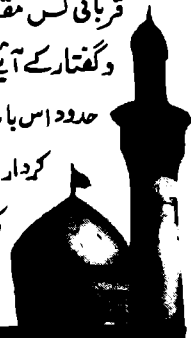 قربانی کس مقـ
وگفتار کے آئیـ
حدود اس با
کردار